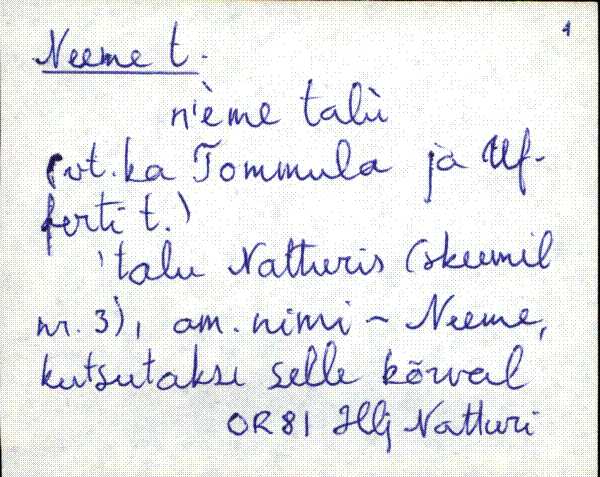 4
Neeme t.
nieme talu
(vt. ka Tommula ja Uf-
ferti t.)
'talu Natturis (skeemil
nr. 3), am. nimi ~ Neeme,
kutsutakse selle kõrval
OR81 Hlj Natturi